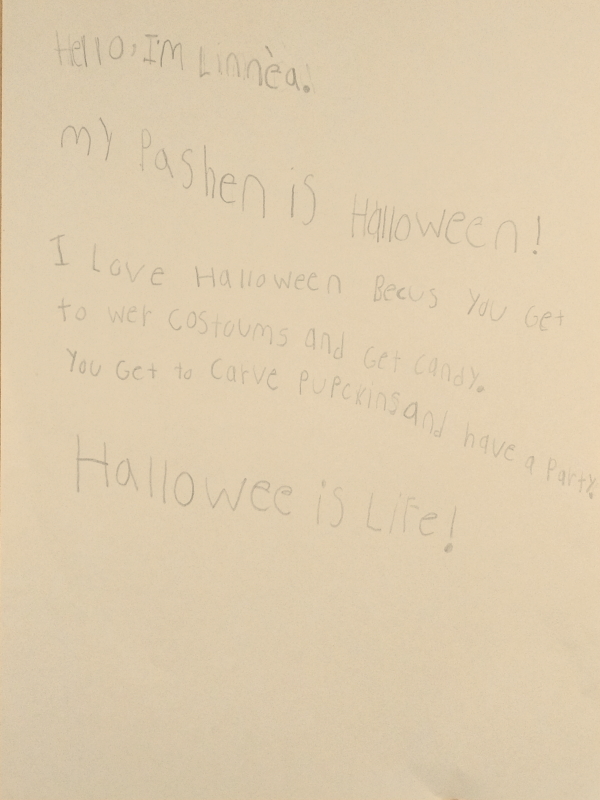 Hello, I'm Linnèa.
my Pashen is Halloween!
I Love Halloween Becus you Get
to wer costoums and Get candy.
You Get to Carve pupckins and have a Party.
Hallowee is Life!